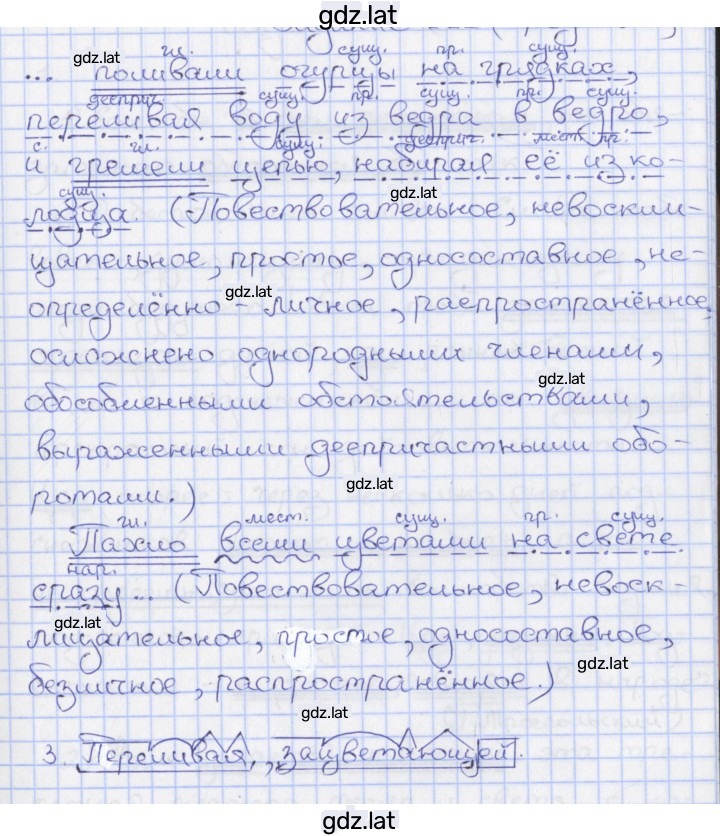 gdz.lat
гл. сущ. пр. сущ.
... поливали огурцы на грядках,
дееприч. сущ. пр. сущ. пр. сущ.
переливая воду из ведра в ведро,
с. гл. сущ. дееприч. мест. пр.
и гремели цепью, набирая её из ко-
сущ.
лодца. (Повествовательное, невоскли-
цательное, простое, односоставное, не-
определённо-личное, распространённое,
осложнено однородными членами,
обособленными обстоятельствами,
выраженными деепричастными обо-
ротами.)
гл. мест. сущ. пр. сущ.
Пахло всеми цветами на свете
нар.
сразу... (Повествовательное, невоск-
лицательное, простое, односоставное,
безличное, распространённое.)
3. Переливая, зацветающей.
gdz.lat
gdz.lat
gdz.lat
gdz.lat
gdz.lat
gdz.lat
gdz.lat
gdz.lat
gdz.lat